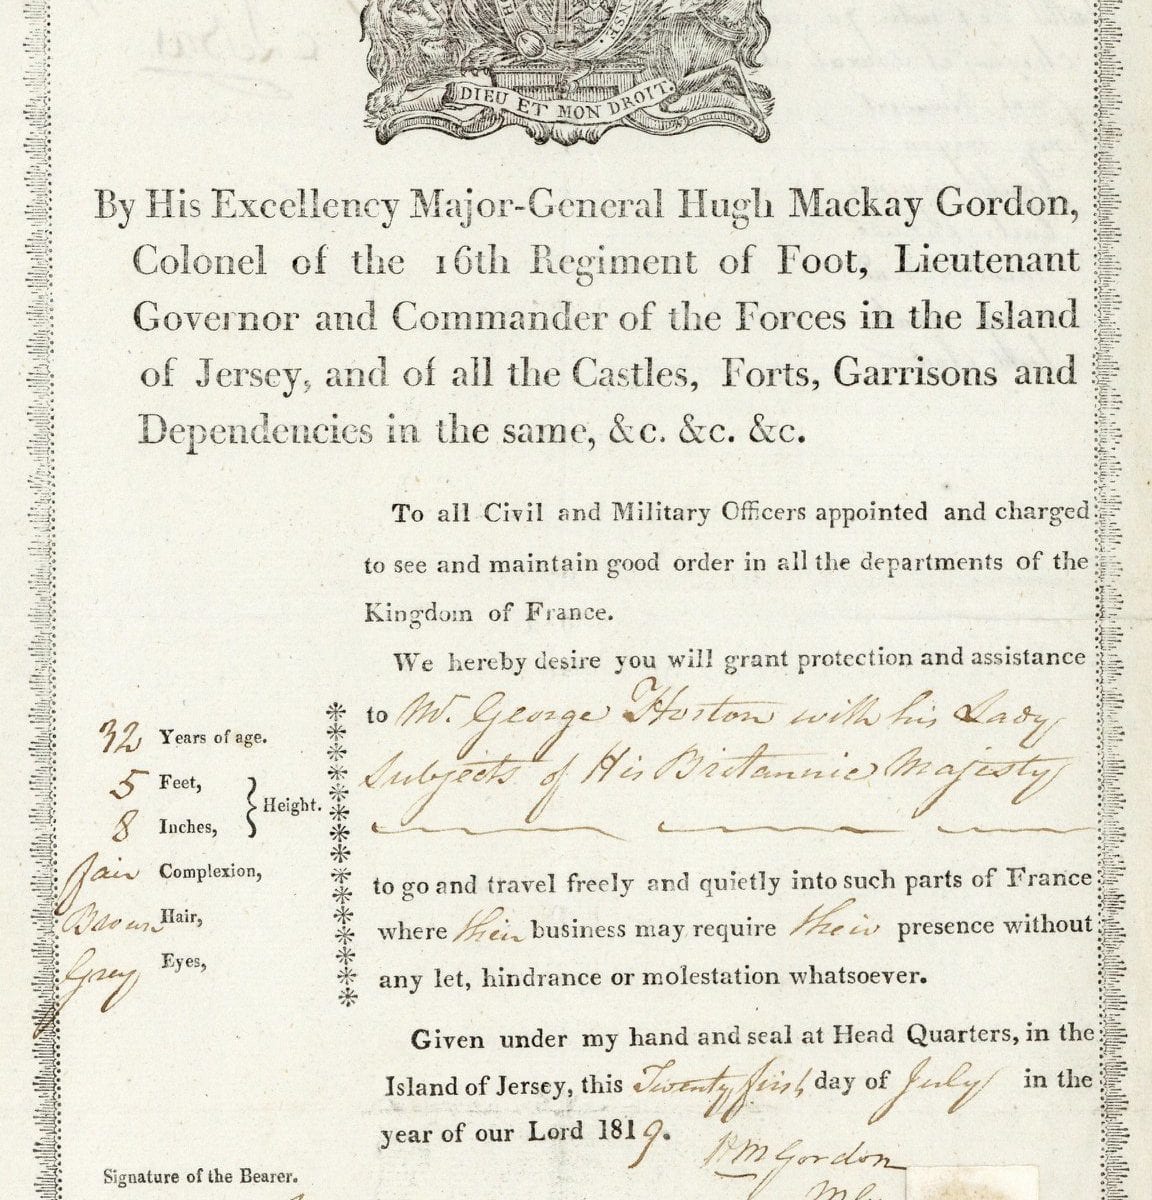 DIEU ET MON DROIT.
By His Excellency Major-General Hugh Mackay Gordon,
Colonel of the 16th Regiment of Foot, Lieutenant
Governor and Commander of the Forces in the Island
of Jersey, and of all the Castles, Forts, Garrisons and
Dependencies in the same, &c. &c. &c.
To all Civil and Military Officers appointed and charged
to see and maintain good order in all the departments of the
Kingdom of France.
We hereby desire you will grant protection and assistance
to Mr. George Horton with his Lady
Subjects of His Britannic Majesty
32 Years of age.
5 Feet,
8 Inches,
Height.
fair Complexion,
Brown Hair,
Grey Eyes,
to go and travel freely and quietly into such parts of France
where their business may require their presence without
any let, hindrance or molestation whatsoever.
Given under my hand and seal at Head Quarters, in the
Island of Jersey, this Twenty first day of July in the
year of our Lord 1819.
HM Gordon
Signature of the Bearer.